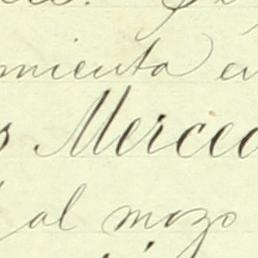 mienta en
s Merced
al mozo